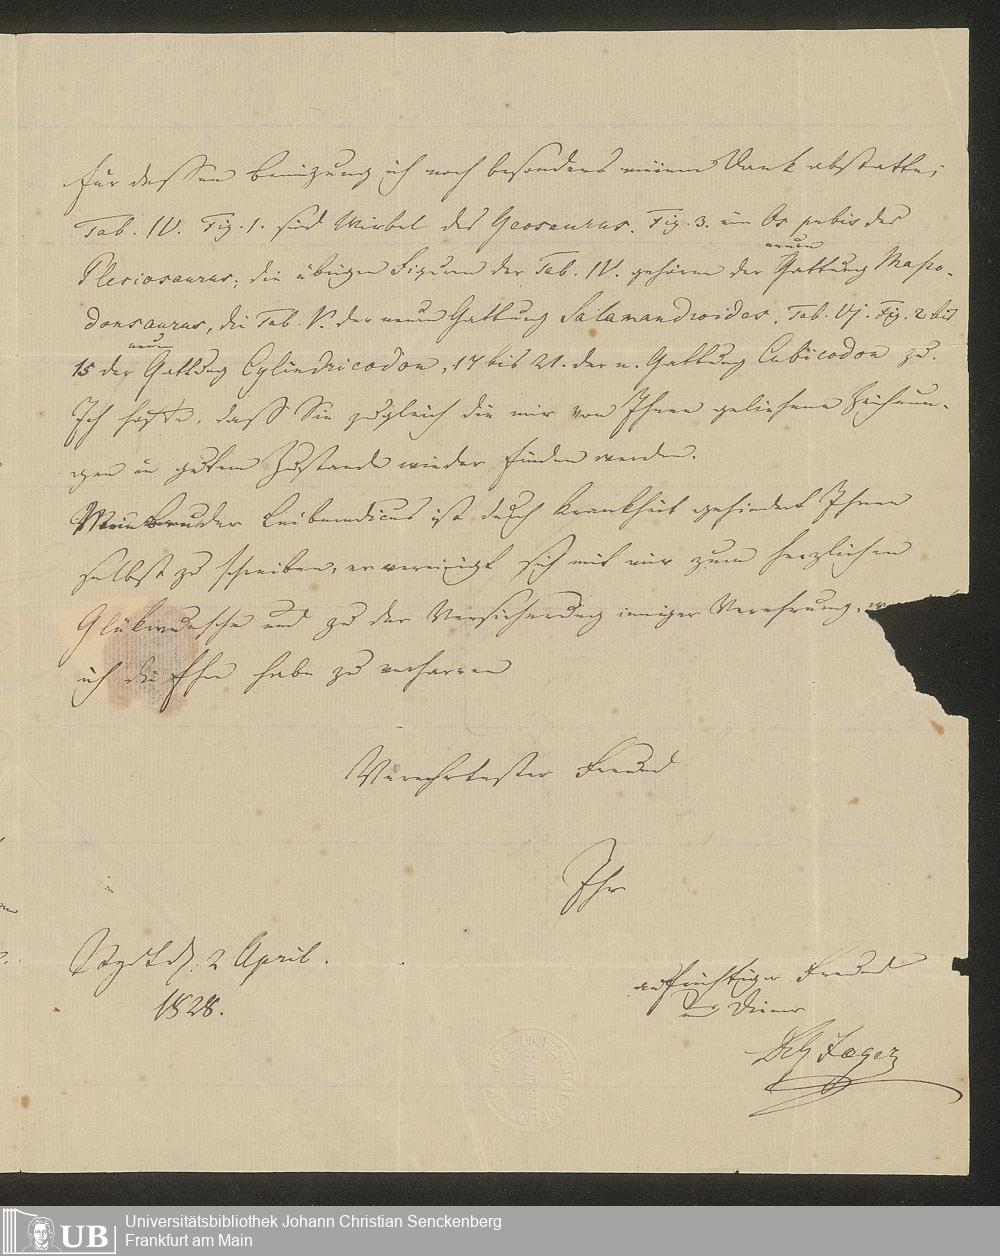 für dessen Benuzung ich noch besonders meinen Dank abstatte;
Tab. IV. Fig. 1. sind Wirbel des Geosaurus. Fig. 3. ein Os pubis des
Plesiosaurus; die übrigen Figuren der Tab. IV. gehören der neuen Gattung Masto-
donsaurus, die Tab. V. der neuen Gattung Salamandroides, Tab. VI. Fig. 2 bis
15 der neuen Gattung Cylindricodon, 17 bis 21. der n. Gattung Cubicodon zu.
Ich hoffe, dass Sie zugleich die mir von Ihnen geliehene Zeichnun-
gen in gutem Zustande wieder finden werden.
Mein Bruder Leibmedicus ist durch Krankheit gehindert Ihnen
selbst zu schreiben, er vereinigt sich mit mir zum herzlichen
Glükwunsche und zu der Versicherung inniger Verehrung,
ich die Ehre habe zu verharren
Verehrtester Freund
Ihr
Stgdt d. 2 April.
1828.
aufrichtiger Freund
und Diener
Jaeger
UB
Universitätsbibliothek Johann Christian Senckenberg
Frankfurt am Main